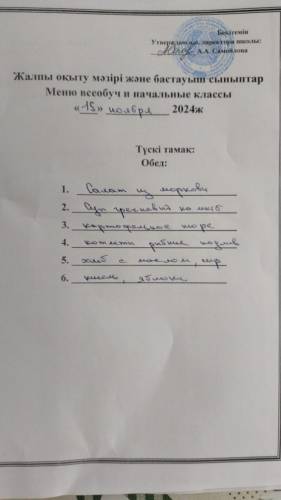 Бекітемін
Утверждаю, директора школы:
А.А. Самойлова
Жалпы оқыту мәзірі және бастауыш сыныптар
Меню всеобуч и начальные классы
«15» ноября 2024ж
Түскі тамақ:
Обед:
1. Салат из моркови
2. Суп гречневый на мясе
3. картофельное пюре
4. котлеты рыбные
5. хлеб с маслом, сыр
6. кисель, яблоки